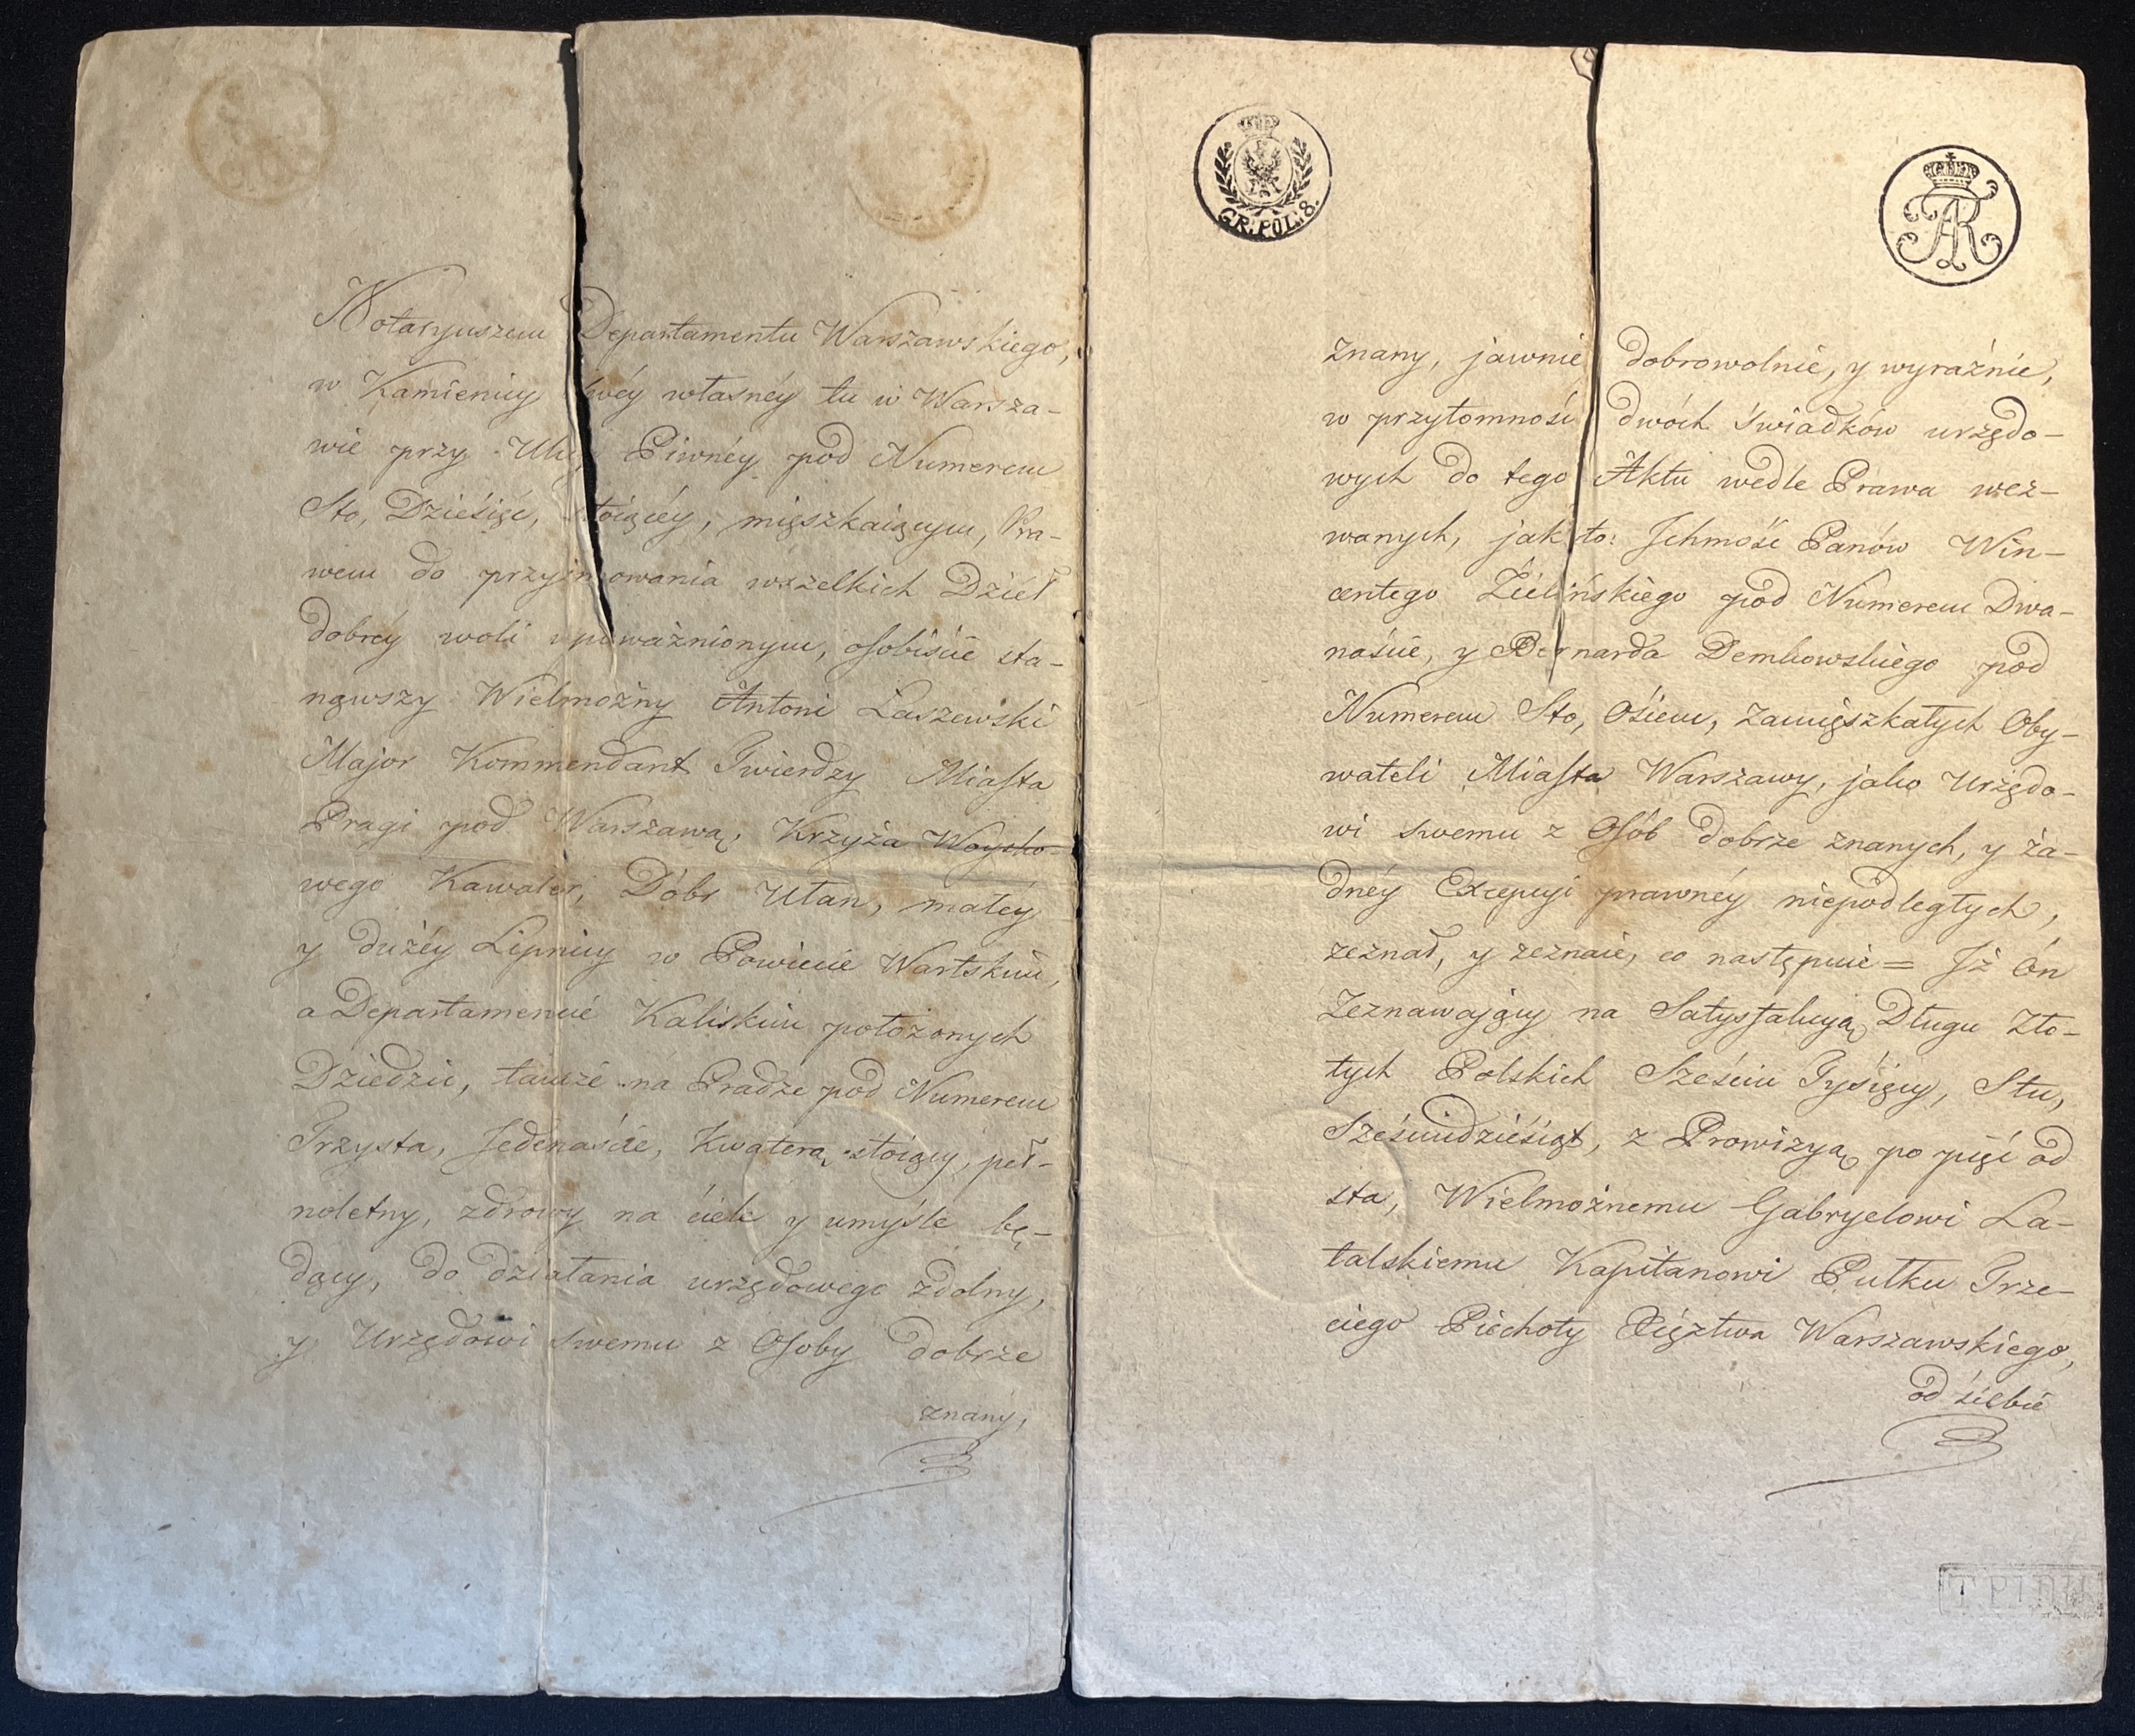 Notaryuszem Departamentu Warszawskiego,
w Kamienicy swéy własnéy tu w Warsza-
wie przy Ulicy Piwnéy pod Numerem
Sto, Dziesięć, stoiącéy, mięszkaiącym, Pra-
wem do przyjmowania wszelkich Dzieł
dobréy woli upoważnionym, osobiście sta-
nąwszy Wielmożny Antoni Laszewski
Major Kommendant Twierdzy Miasta
Pragi pod Warszawą, Krzyża Woysko-
wego Kawaler, Dóbr Utan, małéy
y dużéy Lipnicy w Powiecie Wartskim,
a Departamencie Kaliskim położonych
Dziedzic, tamże na Pradze pod Numerem
Trzysta, Jedenaście, Kwaterą stoiący, peł-
noletny, zdrowy na ciele y umyśle bę-
dący, do działania urzędowego zdolny,
y Urzędowi swemu z Osoby dobrze
znany,
GR. POL. 8.
AR
znany, jawnie dobrowolnie, y wyraźnie,
w przytomności dwóch świadków urzędo-
wych do tego Aktu wedle Prawa wez-
wanych, jak to: Jchmość Panów Win-
centego Zielińskiego pod Numerem Dwa-
naście, y Bernarda Dembowskiego pod
Numerem Sto, Ośiem, zamięszkałych Oby-
wateli Miasta Warszawy, jako Urzędo-
wi swemu z Osób dobrze znanych, y ża-
dnéy Excepcyi prawnéy niepodległych,
zeznał, y zeznaie, co następuie = Jż ón
Zeznawający na Satysfakcyą Długu Zło-
tych Polskich Sześciu Tysięcy, Stu,
Sześćiudziésiąt, z Prowizyą po pięć od
sta, Wielmożnemu Gabryelowi La-
talskiemu Kapitanowi Pułku Trze-
ciego Piechoty Xięztwa Warszawskiego,
od siebie